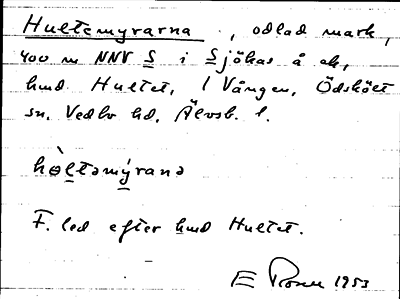 Hultemyrarna, odlad mark,
400 m NNV S i Sjökas å ek,
hmd Hultet, l Vången, Ödskölt
sn. Vedbo hd. Älvsb. l.
hòltəmýranə
F. led efter hmd Hultet.
E 1953